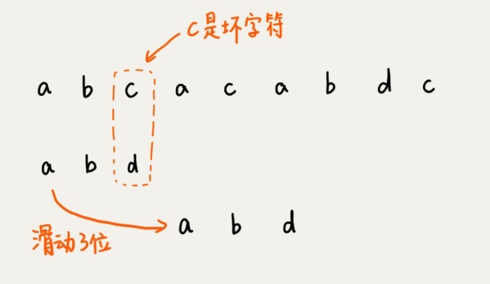 c是坏字符
a b c a c a b d c
a b d
滑动3位
a b d